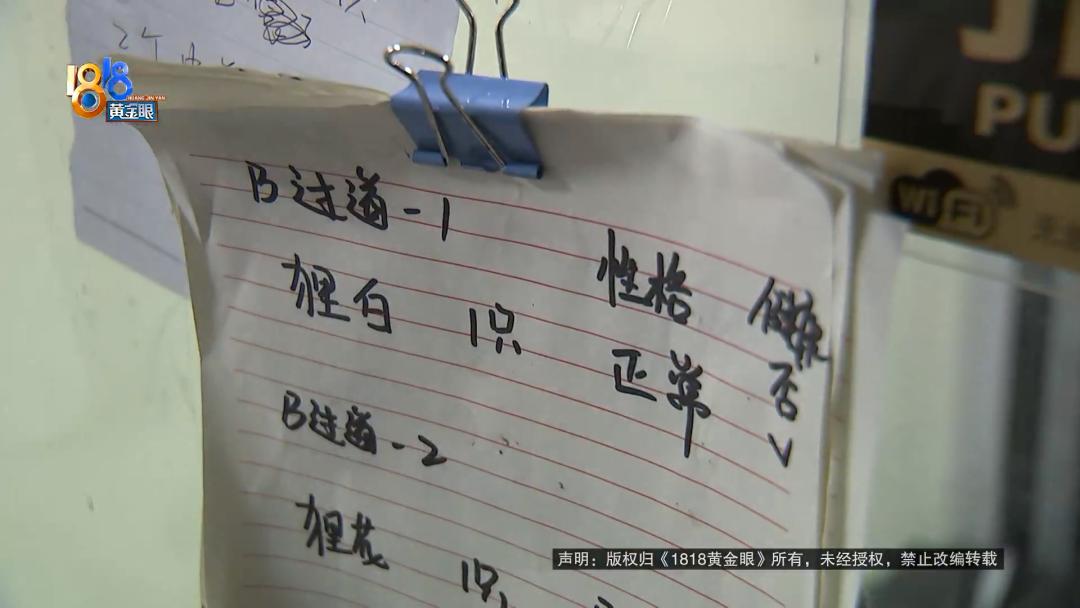 1818
HUANG JIN YAN
黄金眼
2个
B过道-1
性格 健康
狸白 1只 正常 否
✓
B过道-2
狸花 1只
PU
WiFi
声明：版权归《1818黄金眼》所有，未经授权，禁止改编转载